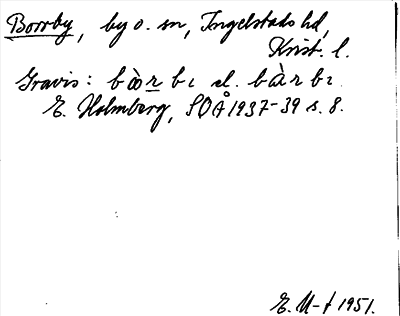 Borrby, by o. sn, Ingelstads hd,
Krist. l.
Gravis: bòrbı el. bàrbı
E. Holmberg, SOÅ 1937-39 s. 8.
E. U-t 1951.